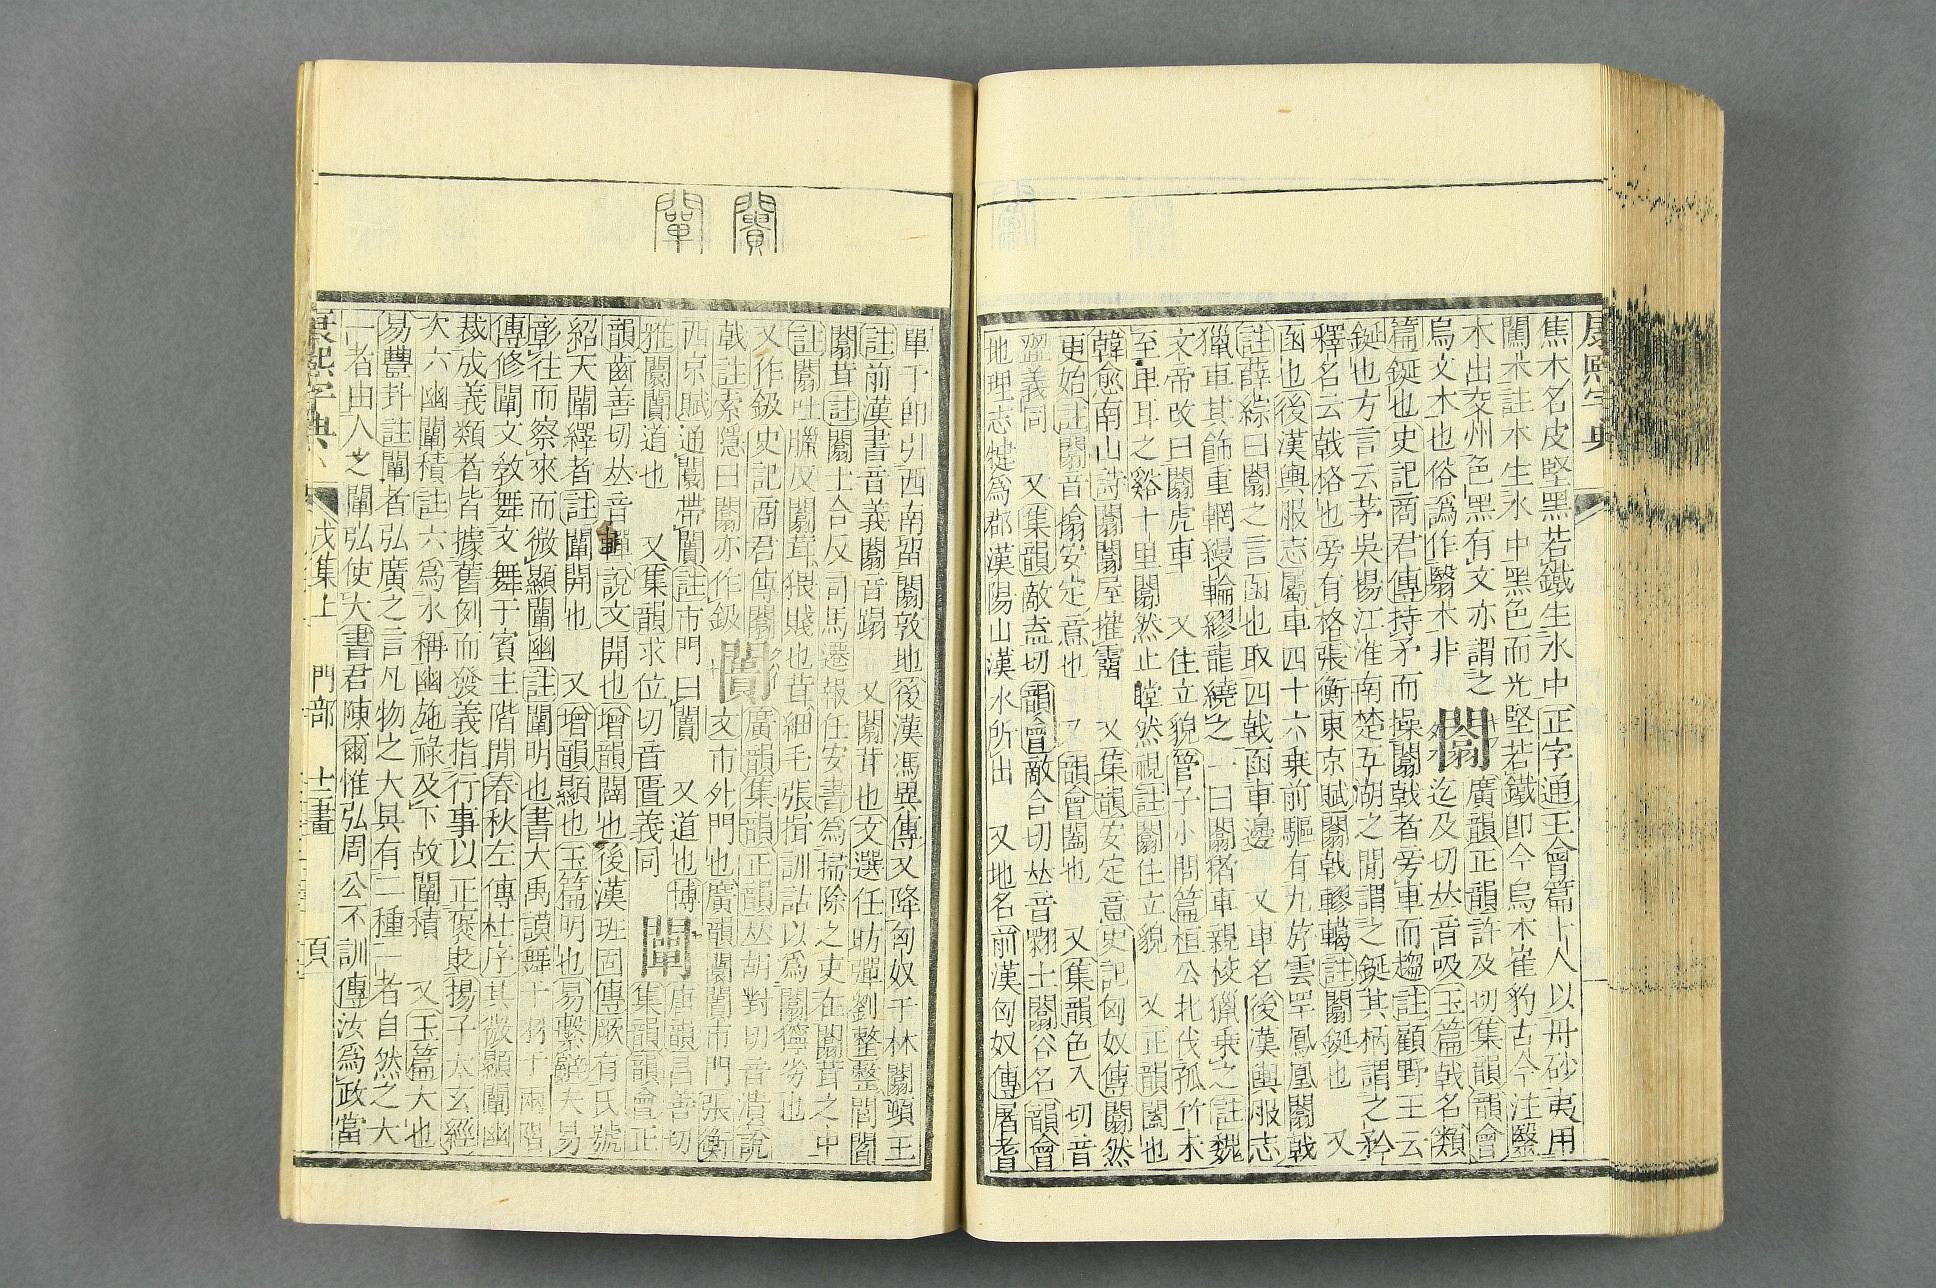 康熙字典
焦木名皮堅黑若鐵生水中正字通王會篇上人以丹砂夷用
闟木註木生水中黑色而光堅若鐵卽今烏木崔豹古今注翳
木出交州色黑有文亦謂之
烏文木也俗譌作翳木非
闟
廣韻正韻許及切集韻韻會
迄及切𠀤音吸玉篇戟名類
篇鋋也史記商君傳持矛而操闟戟者旁車而趨註顧野王云
鋋也方言云茅吳揚江淮南楚五湖之閒謂之鋋其柄謂之矜
釋名云戟格也旁有格張衡東京賦闟戟轇轕註闟鋋也 又
函也後漢輿服志屬車四十六乗前驅有九斿雲罕鳳凰闟戟
註薛綜曰闟之言函也取四戟函車邊 又車名後漢輿服志
獵車其飾重輞縵輪繆龍繞之一曰闟豬車親校獵乗之註魏
文帝改曰闟虎車 又住立貌管子小問篇桓公北伐孤竹未
至𤰞耳之谿十里闟然止瞠然視註闟住立貌 又正韻闔也
韓愈南山詩闟闟屋摧霤 又集韻安定意史記匈奴傳闟然
更始註闟音搨安定意也 又韻會闔也 又集韻色入切音
澀義同 又集韻敵盍切韻會敵合切𠀤音土闟谷名韻會
地理志犍爲郡漢陽山漢水所出 又地名前漢匈奴傳屠耆
闠
闡
單于卽引西南留闟敦地後漢馮異傳又降匈奴于林闟頓王
註前漢書音義闟音蹋 又闟茸也文選任昉彈劉整整閭閻
闟茸註闟土合反司馬遷報任安書爲掃除之吏在闟茸之中
註闟吐臘反闟茸猥賤也茸細毛張揖訓詁以爲闟獰劣也
又作鈒史記商君傳闟
戟註索隱曰闟亦作鈒
闠
廣韻集韻正韻𠀤胡對切音潰說
文市外門也廣韻闤闠市門張衡
西京賦通闤帶闠註市門曰闠 又道也博
雅闤闠道也 又集韻求位切音匱義同
闡
唐韻昌善切
集韻韻會正
韻齒善切𠀤音說文開也增韻闢也後漢班固傳厥有氏號
紹天闡繹者註闡開也 又增韻顯也玉篇明也易繫辭夫易
彰往而察來而微顯闡幽註闡明也書大禹謨舞干羽于兩階
傳修闡文敎舞文舞于賓主階閒春秋左傳杜序其微顯闡幽
裁成義類者皆據舊例而發義指行事以正褒貶揚子太玄經
次六幽闡積註六爲水稱幽施祿及下故闡積 又玉篇大也
易豐卦註闡者弘廣之言凡物之大其有二種一者自然之大
一者由人之闡弘使大書君陳爾惟弘周公丕訓傳汝爲政當
康熙字典 戌集上 門部 十二畫 頁